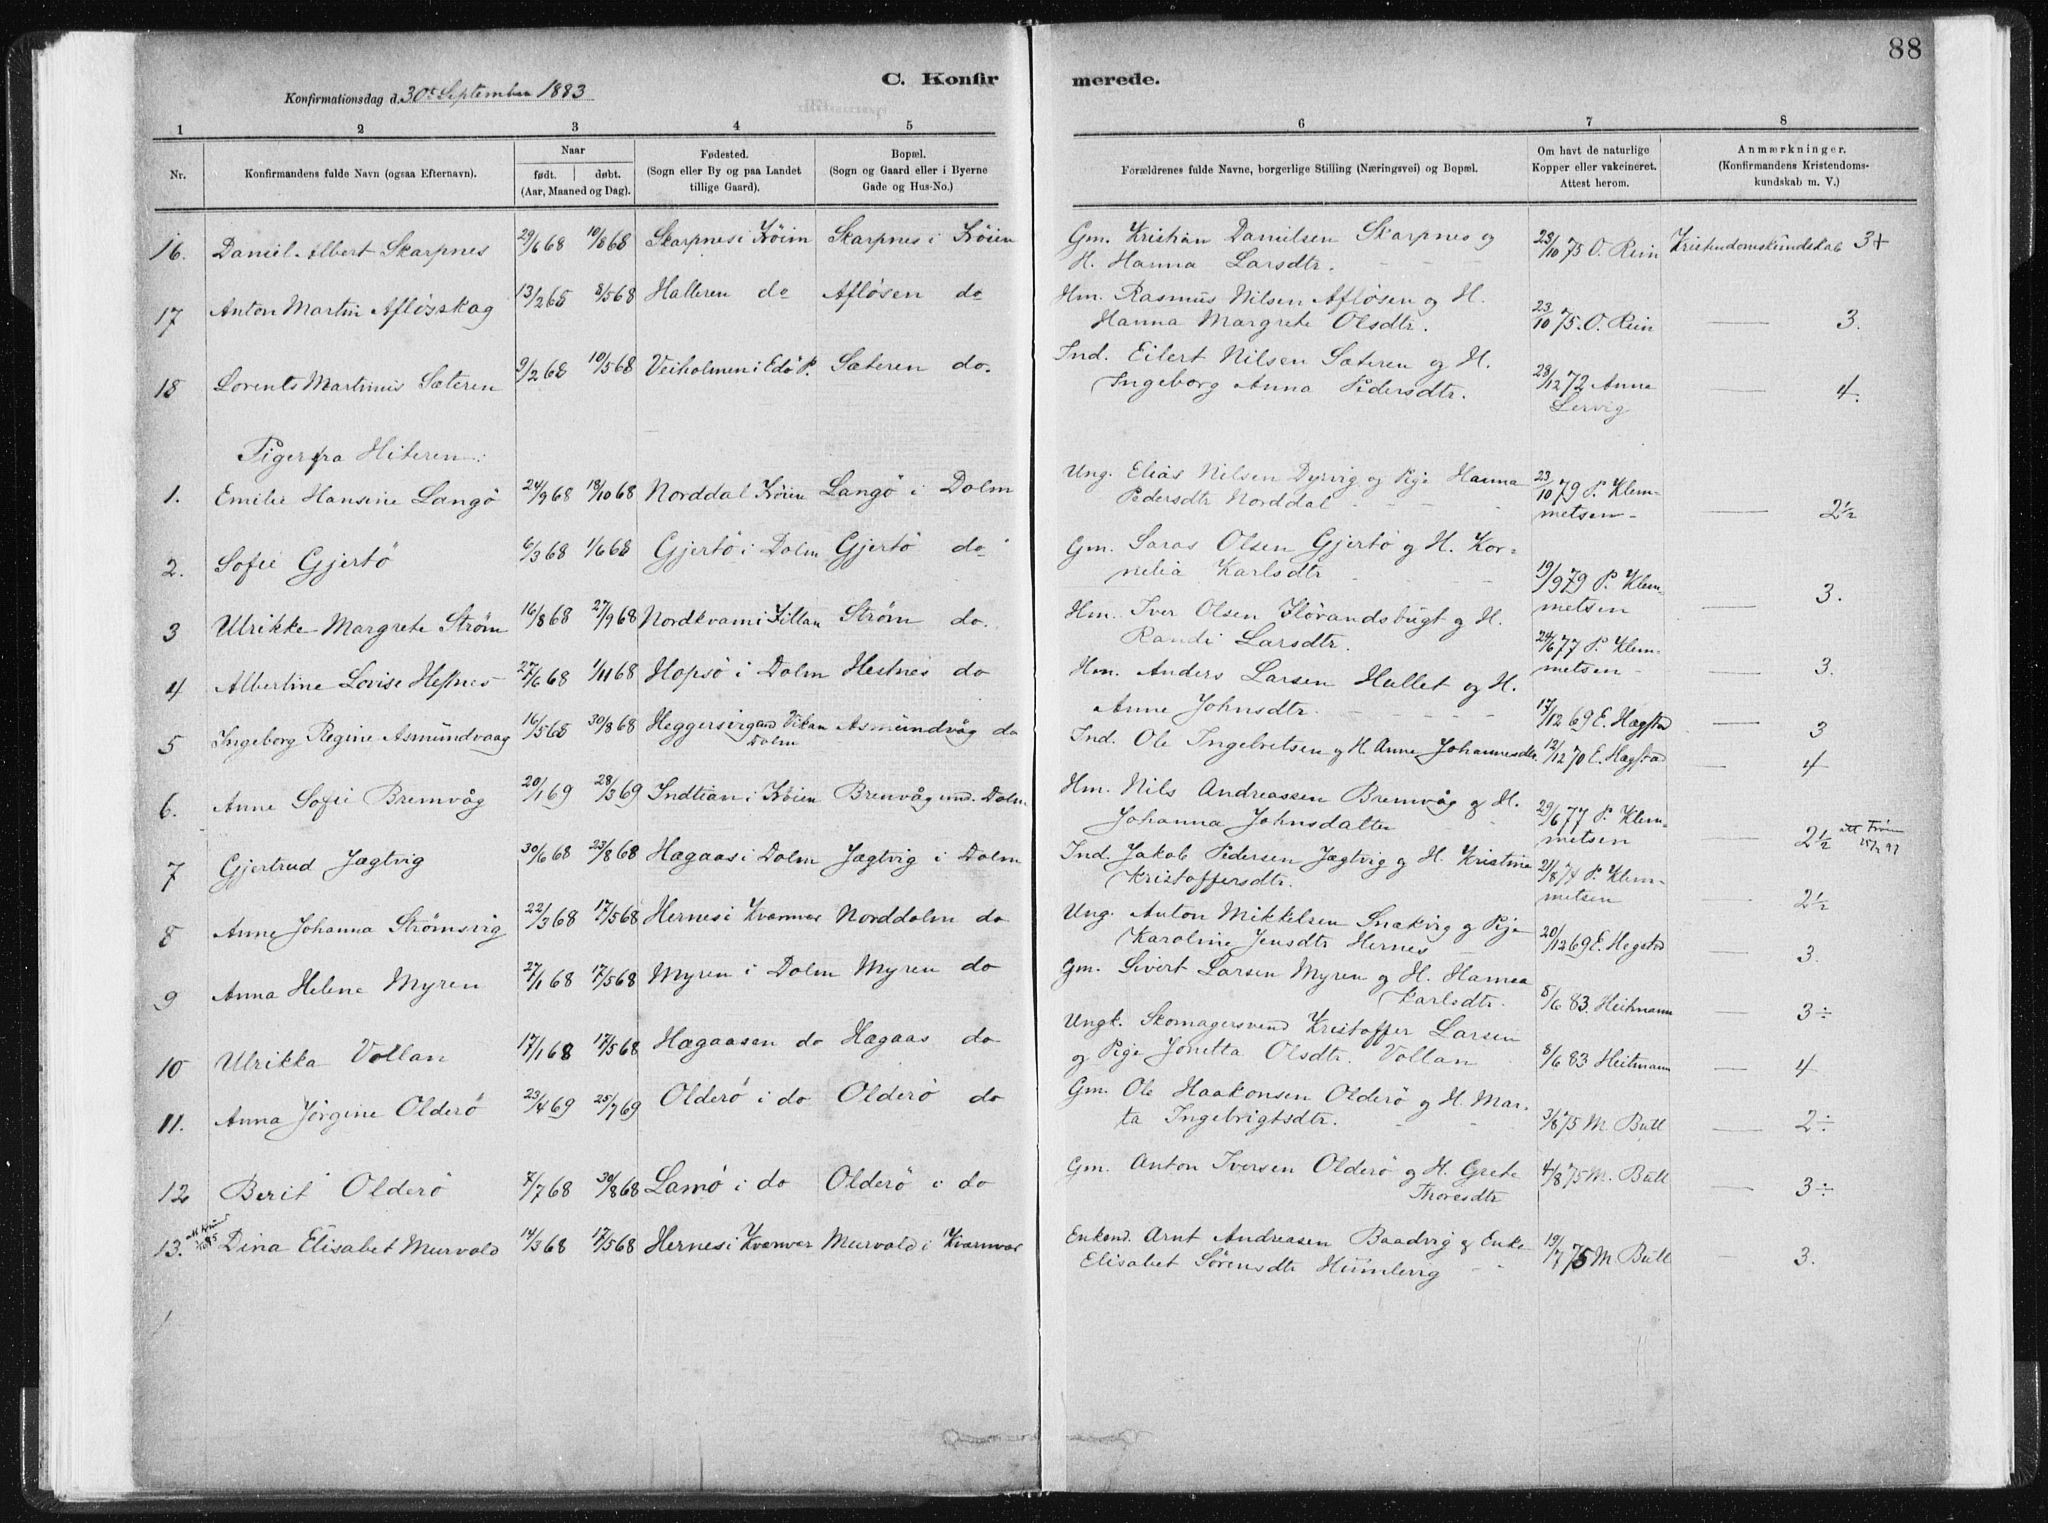 88
C. Konfir merede.
Konfirmationsdag d. 30te September 1883
1 2 3 4 5 6 7 8
Nr.
Konfirmandens fulde Navn (ogsaa Efternavn).
Naar
født. døbt.
(Aar, Maaned og Dag).
Fødested.
(Sogn eller By og paa Landet
tillige Gaard).
Bopæl.
(Sogn og Gaard eller i Byerne
Gade og Hus-No.)
Forældrenes fulde Navne, borgerlige Stilling (Næringsvei) og Bopæl.
Om havt de naturlige
Kopper eller vakcineret.
Attest herom.
Anmærkninger.
(Konfirmandens Kristendoms-
kundskab m. V.)
16. Daniel Albert Skarpnes 29/6 68 10/8 68 Skarpnes i Fröien Skarpnes i Fröien Gm. Kristian Danielsen Skarpnes og
H. Hanna Larsdtr. 23/10 75 O. Rein Kristendomskundskab 3+
17 Anton Martin Aflösskag 13/2 68 8/5 68 Halteren do Aflösen do Hm. Rasmus Nilsen Aflösen og H.
Hanna Margrete Olsdtr. 23/10 75. O. Rein — 3.
18 Lorents Martinus Sæteren 9/2 68 10/5 68 Veiholmen i Edö P. Sæteren do. Ind. Eilert Nilsen Sæteren og H.
Ingeborg Anna Pedersdtr. 28/12 72 Anne
Lervig — 4.
Piger fra Hiteren:
1. Emilie Hansine Langö 24/9 68 18/10 68 Norddal Fröien Langö i Dolm Ung. Elias Nilsen Dyrvig og Pige Hanna
Pedersdtr Norddal 23/10 79 P. Klem-
metsen — 2½
2. Sofie Gjertö 6/3 68 1/6 68 Gjertö i Dolm Gjertö do Gm. Saras Olsen Gjertö og H. Kor-
nelia Karlsdtr 19/9 79 P. Klem-
metsen — 3.
3 Ulrikke Margrete Ström 16/8 68 27/9 68 Nordkvam i Fillan Ström do. Hm. Iver Olsen Flövandsbugt og H.
Randi Larsdtr. 24/6 77 P. Klem-
metsen — 3.
4 Albertine Lovise Hestnes 27/6 68 1/11 68 Hopsö i Dolm Hestnes do Hm. Anders Larsen Hallet og H.
Anne Johnsdtr. 17/12 69 E. Hægstad — 3
5 Ingeborg Regine Asmundvaag 16/5 68 30/8 68 Heggersvig und. Vikan
Dolm Asmundvåg do Ind. Ole Ingebretsen og H. Anne Johannesdtr. 12/12 70 E. Hægstad — 4
6. Anne Sofie Bremvåg 20/1 69 28/3 69 Indtian i Fröien Bremvåg und. Dolm Hm. Nils Andreassen Bremvåg og H.
Johanna Johnsdatter 29/6 77 P. Klem-
metsen — 2½ att Fröien
7 Gjertrud Jægtvig 30/6 68 23/8 68 Hægaas i Dolm Jægtvig i Dolm Ind. Jakob Pedersen Jægtvig og H. Kristine
Kristoffersdtr. 21/8 74 P. Klem-
metsen — 2½
8 Anne Johanna Strömsvig 22/3 68 17/5 68 Hernes i Kvænvær Norddolm do Ung. Anton Mikkelsen Snækvig og Pige
Karoline Jensdtr Hernes 20/12 69 E. Hegstad — 3.
9 Anna Helene Myren 27/1 68 17/5 68 Myren i Dolm Myren do Gm. Sivert Larsen Myren og H. Hanna
Karlsdtr. 8/6 83. Heitmann — 3÷
10 Ulrikka Vollan 17/1 68 17/5 68 Hægaasen do Hægaas do Ungk. Skomagersvend Kristoffer Larsen
og Pige Jonetta Olsdtr. Vollan 8/6 83 Heitmann — 4
11. Anna Jörgine Olderö 23/4 69 25/7 69 Olderö i do Olderö do Gm. Ole Haakonsen Olderö og H. Mar-
ta Ingebrigtsdtr. 3/8 75 M. Bull — 2÷
12 Berit Olderö 7/7 68 30/8 68 Lamö i do Olderö i do Gm. Anton Iversen Olderö og H. Grete
Thoresdtr 4/8 75 M. Bull — 3÷
13. Dina Elisabet Murvold 14/3 68 17/5 68 Hernes i Kvænvær Murvold i Kvænvær Enkemd. Arnt Andreasen Baadvig og Enke
Elisabet Sörensdtr Humlevig 19/7 75 M Bull 3.